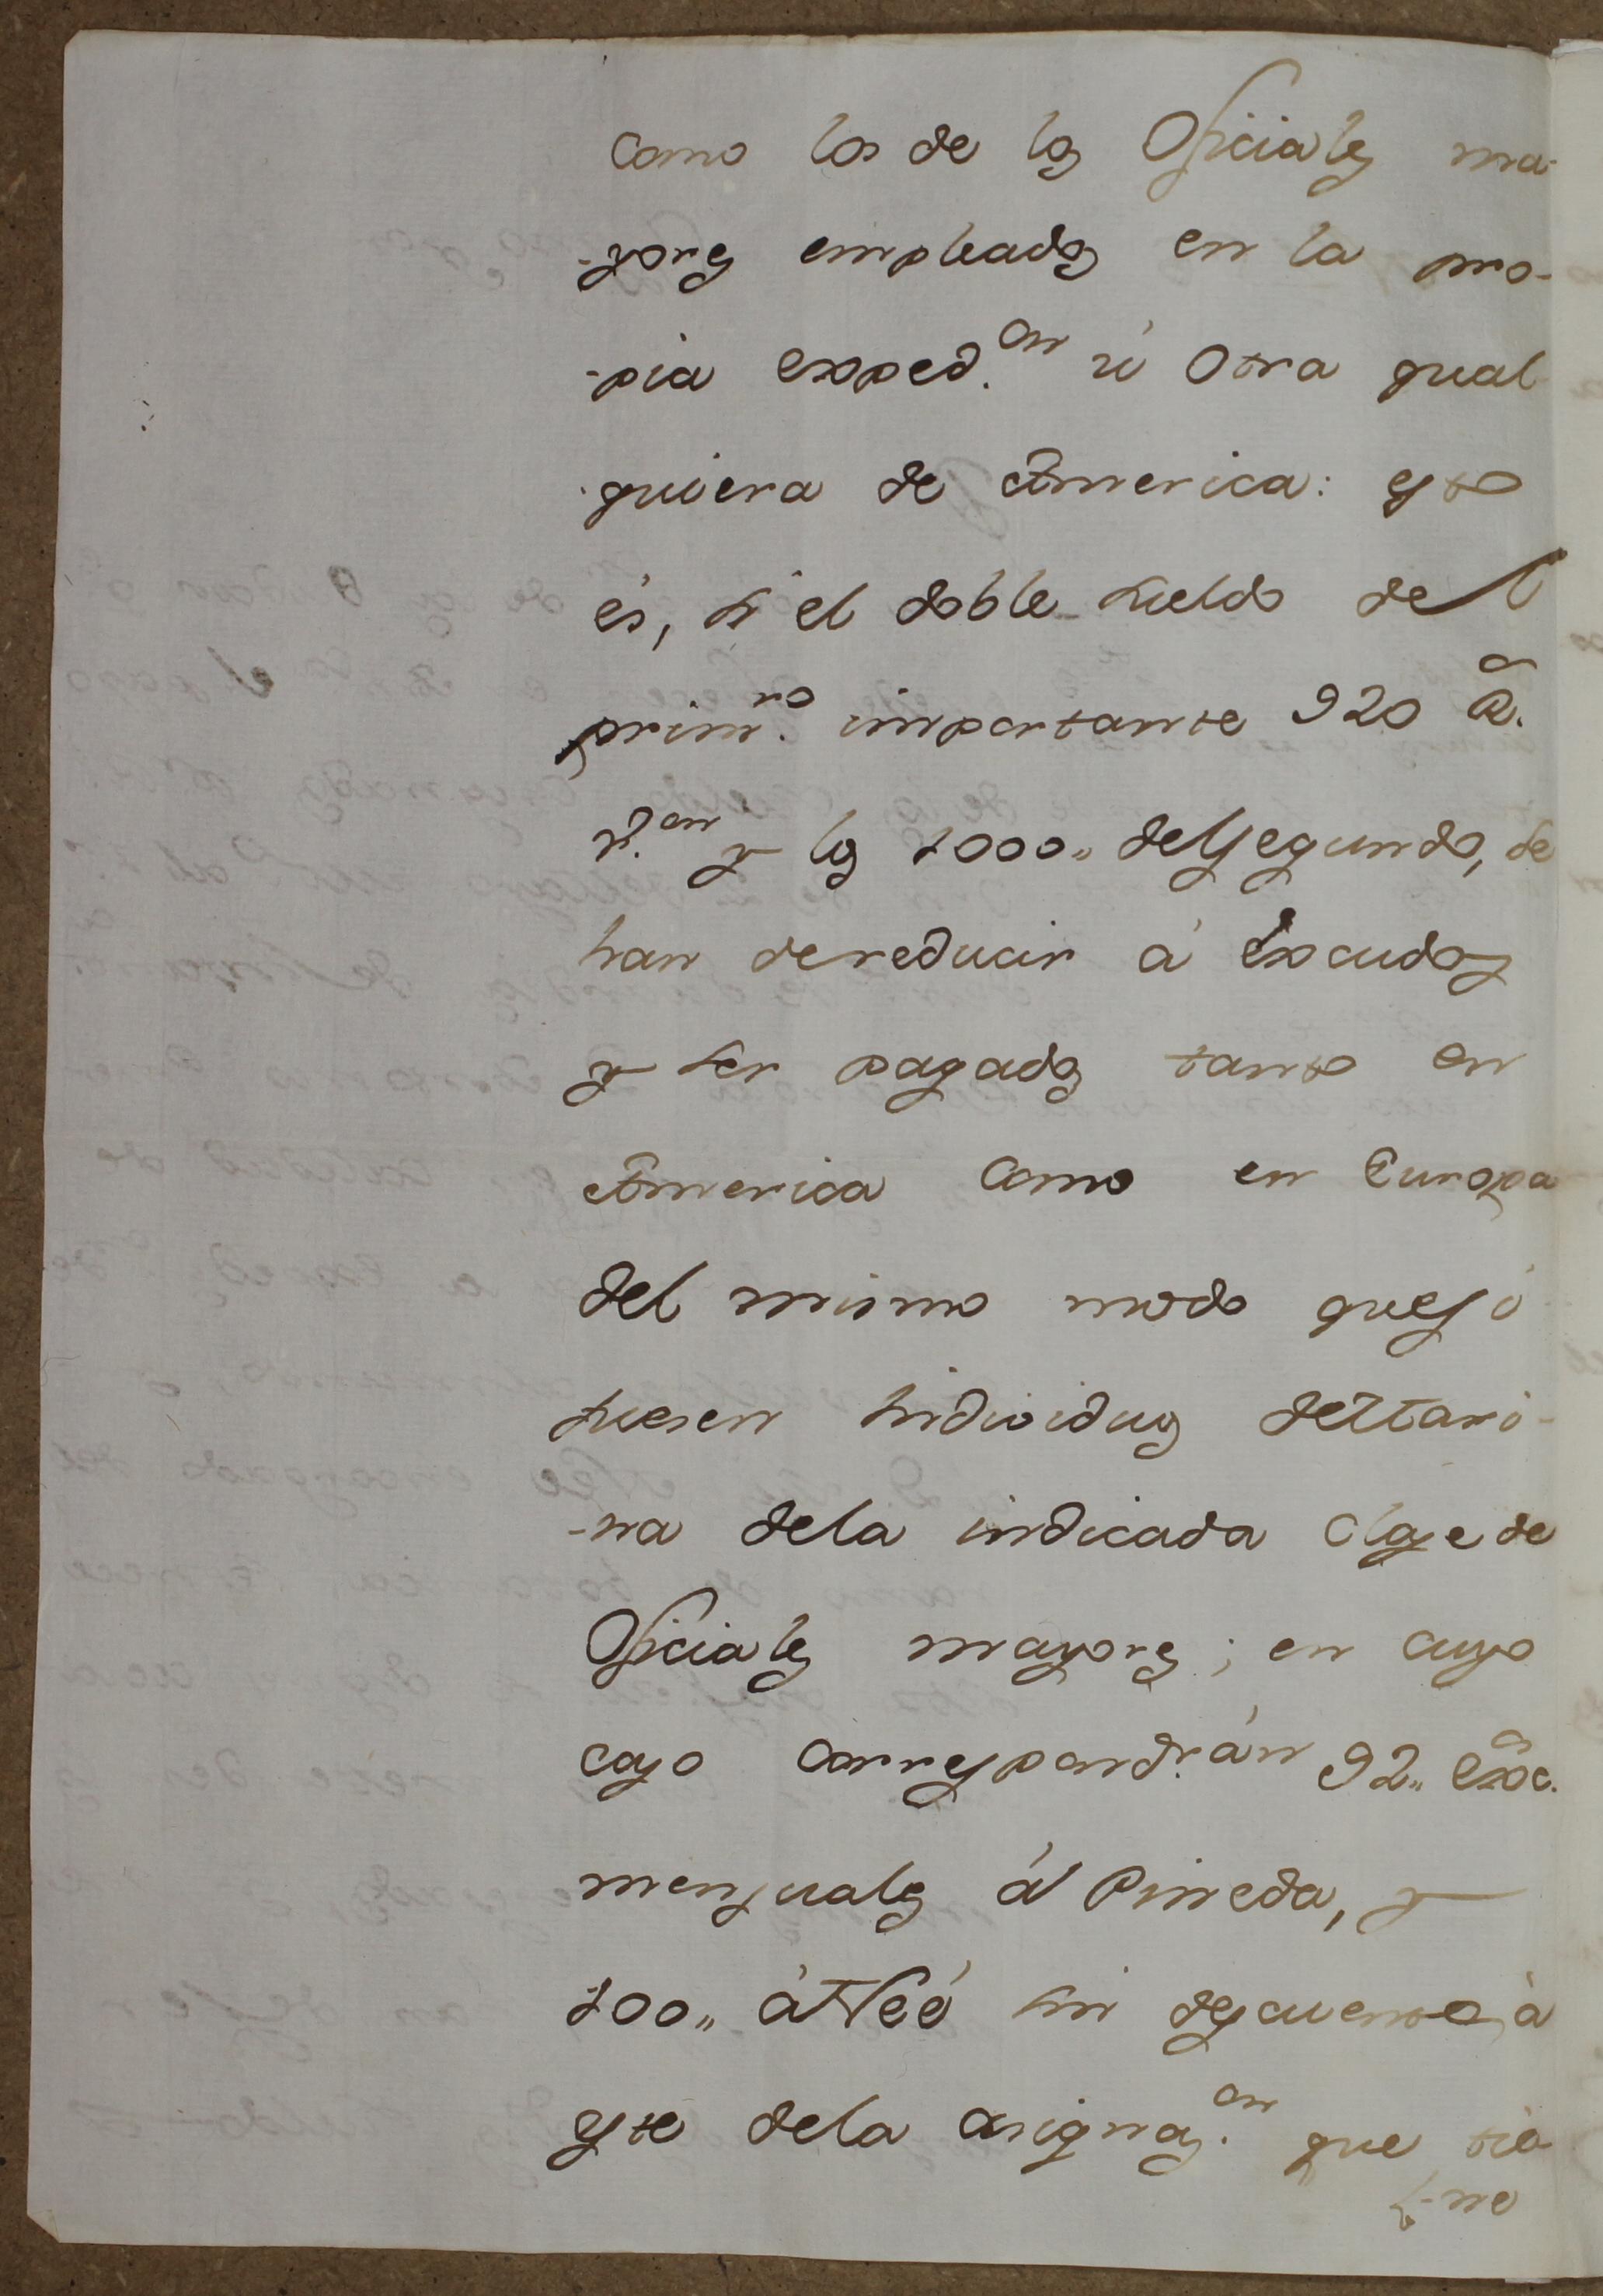 como los de los Oficiales ma-
-yores empleados en la pro-
-pia exped.on ú otra qual
-quiera de America: esto
es, si el doble sueldo del
prim.ro importante 920 R.
v.on y los 1000,, del segundo, se
han dereducir á escudos
y ser pagados tanto en
America como en Europa
del mismo modo que si
fuesen individuos de Mari-
-na dela indicada clase de
Oficiales mayores; en cuyo
caso correspondrán 92,, esc.
mensuales á Pineda, y
100,, á Neé sin descuento á
este dela asignaz.on que tie-
-ne